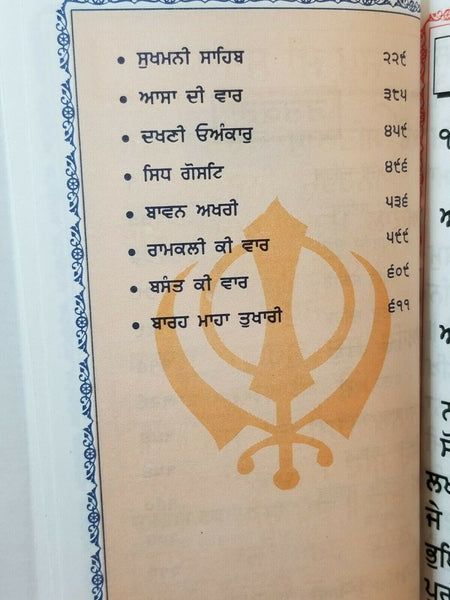 • ਸੁਖਮਨੀ ਸਾਹਿਬ ੨੨੯
• ਆਸਾ ਦੀ ਵਾਰ ੩੯੫
• ਦਖਣੀ ਓਅੰਕਾਰੁ ੪੫੯
• ਸਿਧ ਗੋਸਟਿ ੪੯੬
• ਬਾਵਨ ਅਖਰੀ ੫੩੬
• ਰਾਮਕਲੀ ਕੀ ਵਾਰ ੫੯੯
• ਬਸੰਤ ਕੀ ਵਾਰ ੬੦੯
• ਬਾਰਹ ਮਾਹਾ ਤੁਖਾਰੀ ੬੧੧